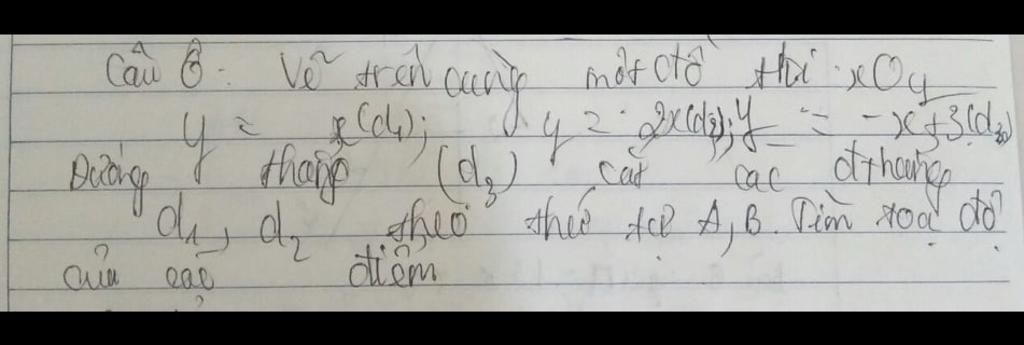 Câu 6. Vẽ trên cùng một đồ thị xOy
y = x(d₁); y = 2x(d₂); y = -x+3(d₃)
Đường thẳng (d₃) cắt các đthẳng
d₁, d₂ theo theó tứ A, B. Tìm toạ độ
của các điểm